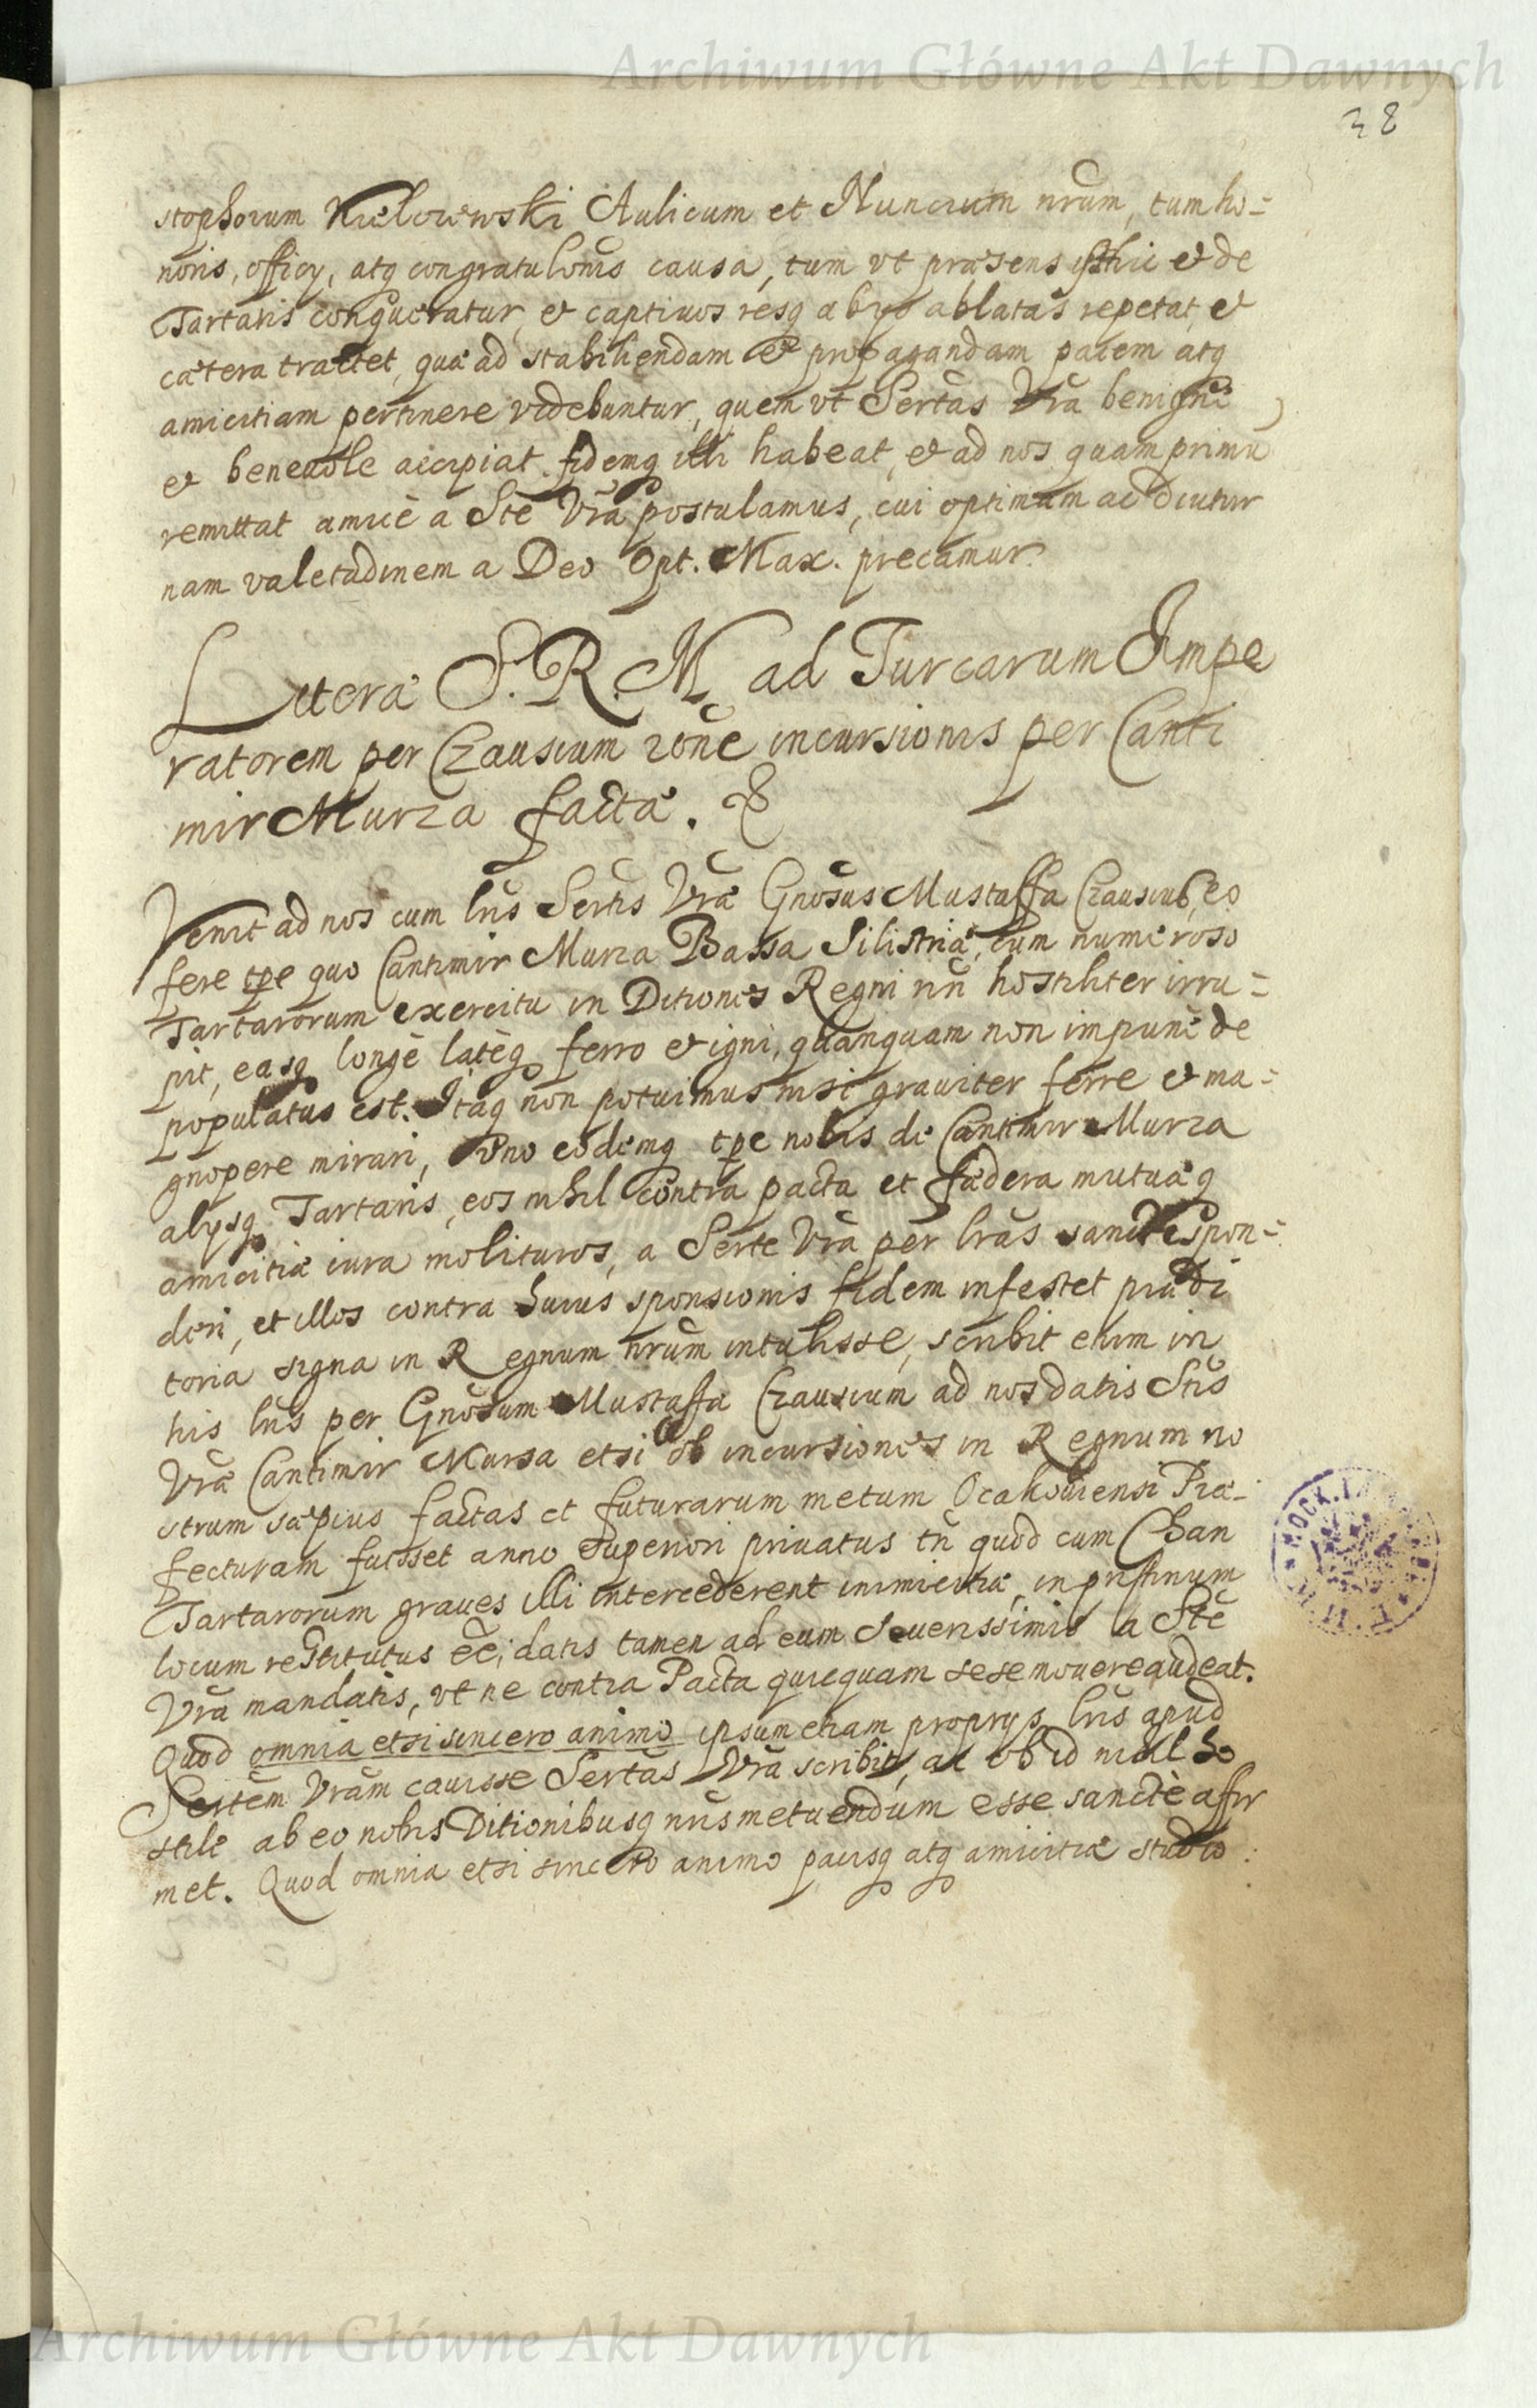 Archiwum Główne Akt Dawnych
38
stophorum Kielczewski Aulicum et Nuncium nrum, tum ho=
noris, officy, atq congratulonis causa, tum vt præsens isthic et de
Tartaris conqueratur, et captiuos resq ab ijs ablatas repetat, et
cætera tractet, quæ ad stabiliendam et propagandam pacem atq
amicitiam pertinere videbuntur, quem vt Sertas Vra benignè
et beneuole accipiat fidemq illi habeat, et ad nos quamprimu
remittat amicè a Ste Vra postulamus, cui optimam ac diutur
nam valetudinem a Deo Opt. Max. precamur.
Litteræ S. R. M. ad Turcarum Impe
ratorem per Czausium rone incursionis per Canti
mir Murza factæ.
Venit ad nos cum lris Sertis Vræ Gnosus Mustaffa Czausius, eo
fere tpe quo Cantimir Murza Bassa Silistriæ, cum numeroso
Tartarorum exercitu in Ditiones Regni nri hostiliter irru=
pit, easq longè latèq ferro et igni, quanquam non impunè de
populatus est. Itaq non potuimus nisi grauiter ferre et ma=
gnopere mirari, vno eodemq tpe nobis de Cantimir Murza
alysq Tartaris, eos nihil contra pacta et fædera mutuæq
amicitiæ iura molituros, a Serte Vra per lras sanctè spon=
deri, et illos contra huius sponsionis fidem infestet prædi
toria signa in Regnum nrum intulisse, scribit enim in
his lris per Gnosum Mustaffa Czausium ad nos datis Stis
Vræ Cantimir Mursa etsi ob incursiones in Regnum no
strum sæpius factas et futurarum metum Oczakowiensi Præ=
fecturam fuisset anno superiori priuatus tn quod cum Chan
Tartarorum graues illi intercederent inimicitiæ, in pristinum
locum restitutus eē, datis tamen ad eum seuerissimis a Ste
Vra mandatis, vt ne contra Pacta quicquam sese mouere audeat.
Quod omnia etsi sincero animo ipsum etiam proprys lris apud
Sertem Vram cauisse Sertas Vra scribit, ac ob id nihil ho
stile ab eo nobis Ditionibusq nris metuendum esse sanctè affir
met. Quod omnia etsi sincero animo pacisq atq amicitiæ studio:
Archiwum Główne Akt Dawnych